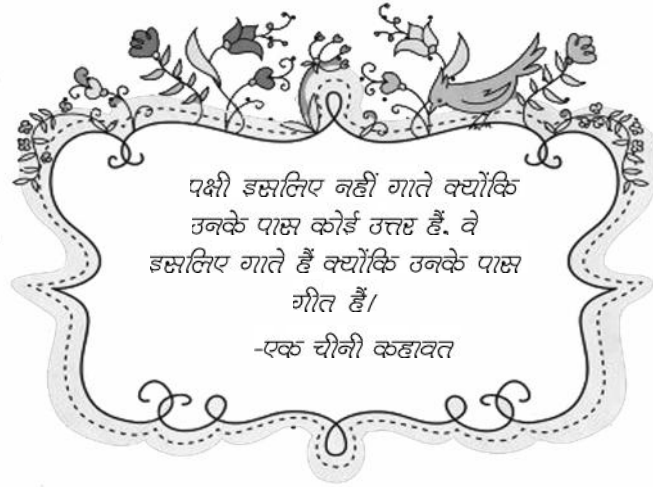 पक्षी इसलिए नहीं गाते क्योंकि
उनके पास कोई उत्तर हैं. वे
इसलिए गाते हैं क्योंकि उनके पास
गीत हैं/
-एक चीनी कहावत